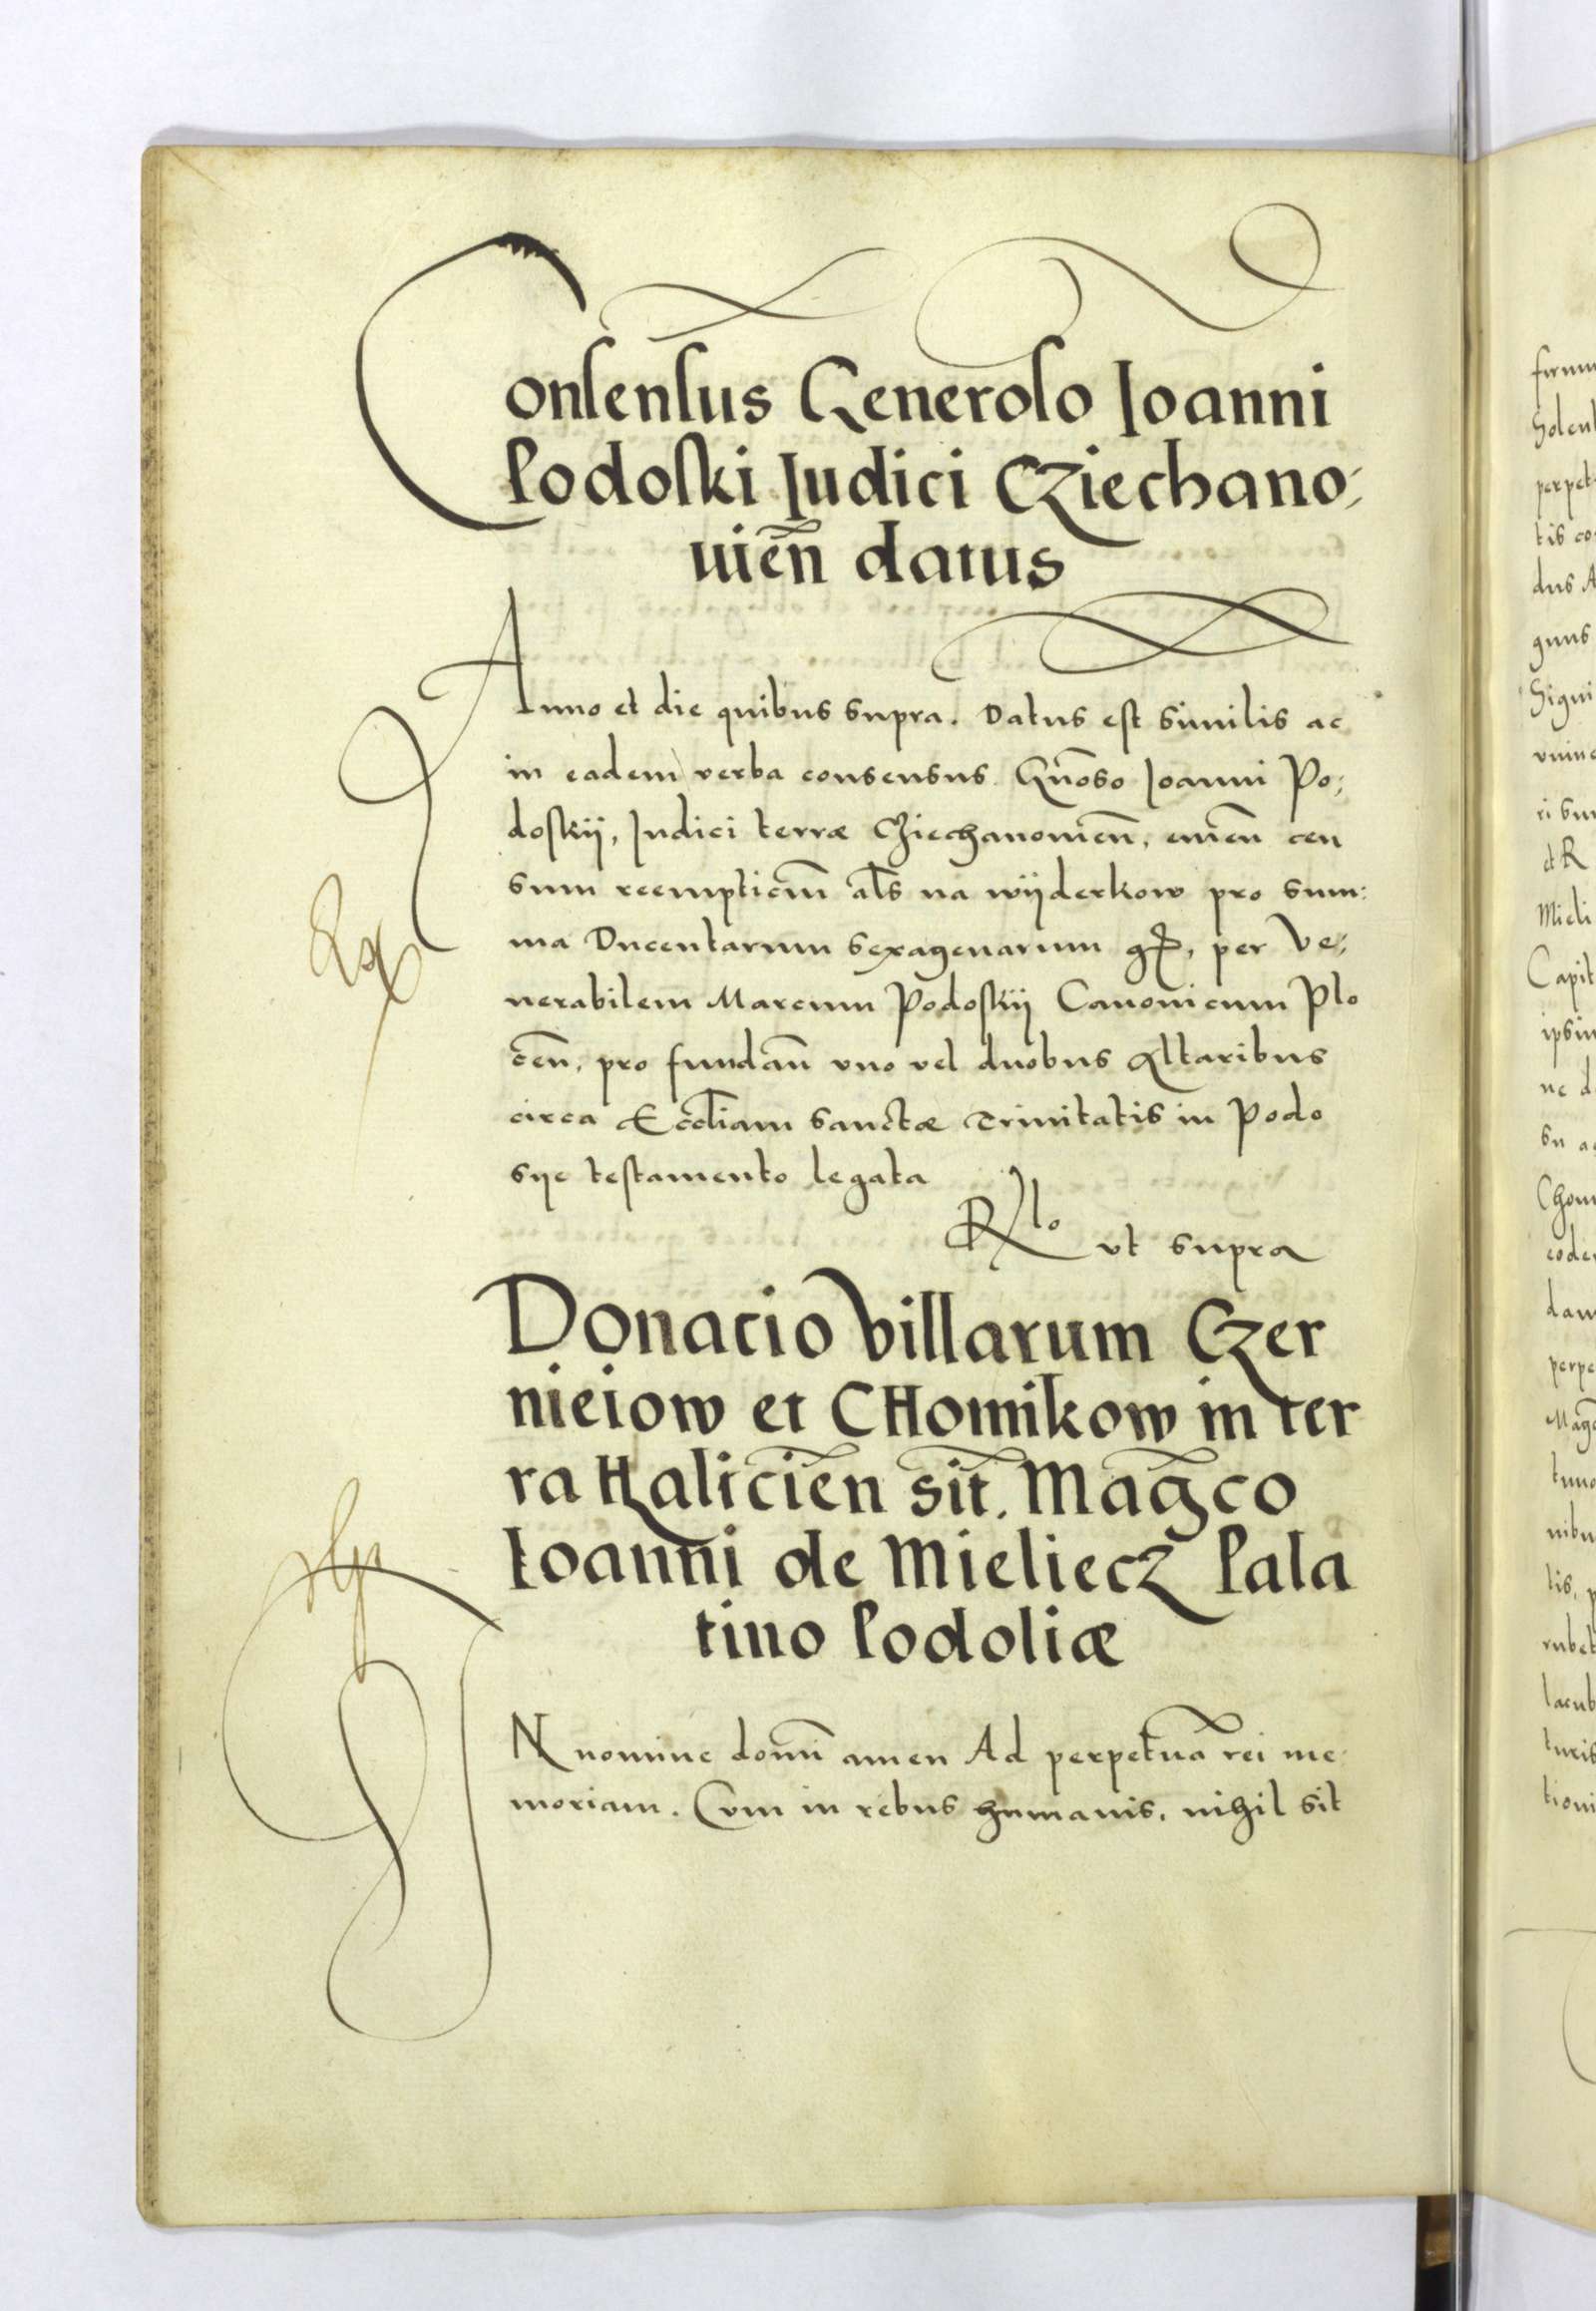 Consensus Generoso Ioanni
Podoski Iudici Cziechano⸗
uien̄ datus
Anno et die quibus supra. Datus est similis ac
in eadem verba consensus Gn̄oso Ioanni Po⸗
doskij, Iudici terræ Cziechanouien̄, emen̄ cen
sum reempticiu̅ al̄s na wijderkow pro sum⸗
ma Ducentarum sexagenarum gr̄, per Ve⸗
nerabilem Marcum Podoskij Canonicum Plo
cen̄, pro fundan̄ vno vel duobus Altaribus
circa Eccl̄iam sanctæ Trinitatis in Podo
sije testamento legata
R^lo vt supra
Donacio villarum Czer
nieiow et CHomikow in ter
ra Halicien̄ sit̄. Mag̅co
Ioanni de Mieliecz Pala
tino Podoliæ
IN nomine domī amen Ad perpetuā rei me⸗
moriam. Cvm in rebus humanis, nihil sit
firmu
Solen
perpet
tis co
dus A
gnus
Signi
et R
Mieli
Capit
ipsiu
ne d
su a
Chom
eode
dam
perpe
Mag
nibu
tis, p
rubet
lacub
turis
tioni